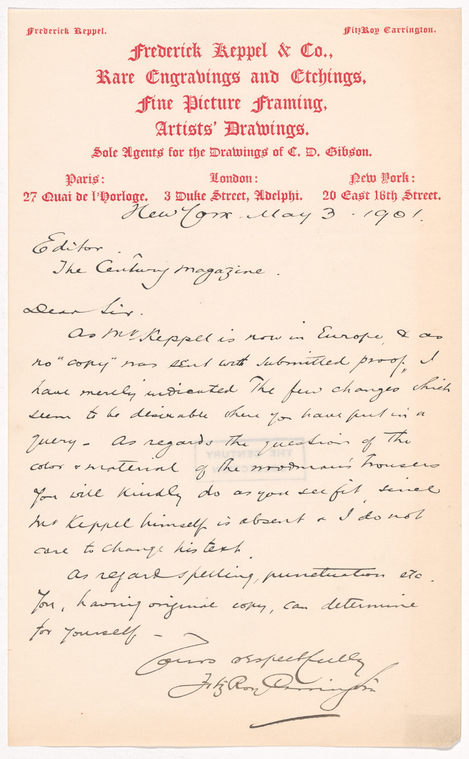 Frederick Keppel. FitzRoy Carrington.
Frederick Keppel & Co.,
Rare Engravings and Etchings,
Fine Picture Framing,
Artists' Drawings.
Sole Agents for the Drawings of C. D. Gibson.
Paris: London: New York:
27 Quai de l'Horloge. 3 Duke Street, Adelphi. 20 East 16th Street.
New York. May 3. 1901.
Editor.
The Century Magazine.
Dear Sir.
As Mr Keppel is now in Europe, & as
no "copy" was sent with submitted proof, I
have merely indicated the few changes which
seem to be desirable where you have put in a
query – As regards the question of the
color & material of the woodman's trousers
you will kindly do as you see fit, since
Mr Keppel himself is absent & I do not
care to change his text.
As regard spelling, punctuation etc.
You, having original copy, can determine
for yourself –
Yours respectfully
FitzRoy Carrington
THE CENTURY